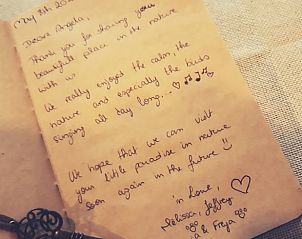 May 8th 20
Deare Angela,
Thank you for sharing your
beautiful place in the nature
with us
We really enjoyed the calm, the
nature and especially the birds
singing all day long...
We hope that we can visit
your little paradise in nature
soon again in the future
in Love,
Melissa, Jeffrey
& Freja